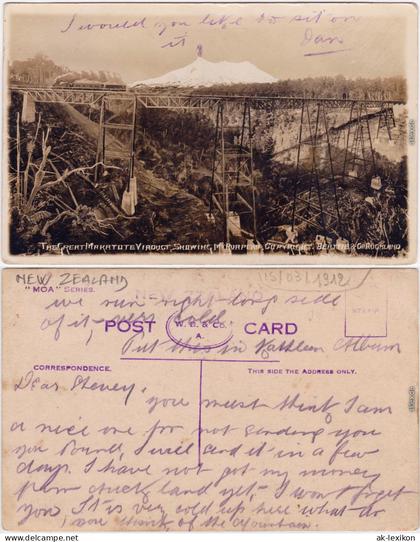 I would you like to sit on
it Dan
THE GREAT MAKATOTE VIADUCT, SHOWING Mt RUAPEHU. COPYRIGHT. BENTON & Co AUCKLAND
NEW ZEALAND
15/03/1912
"MOA" SERIES.
we run right long side
of it, very cold
POST W. B. & CO. A. CARD
STAMP
Put this in Kathleen Album
CORRESPONDENCE.
THIS SIDE THE ADDRESS ONLY.
Dear Stevey,
you must think I am
a nice one for not sending you
you Pound, I will send it in a few
days. I have not got my money
from Auckland yet, I won't forget
you. It is very cold up here what do
you think of the Mountain.
© ak-lexikon.com